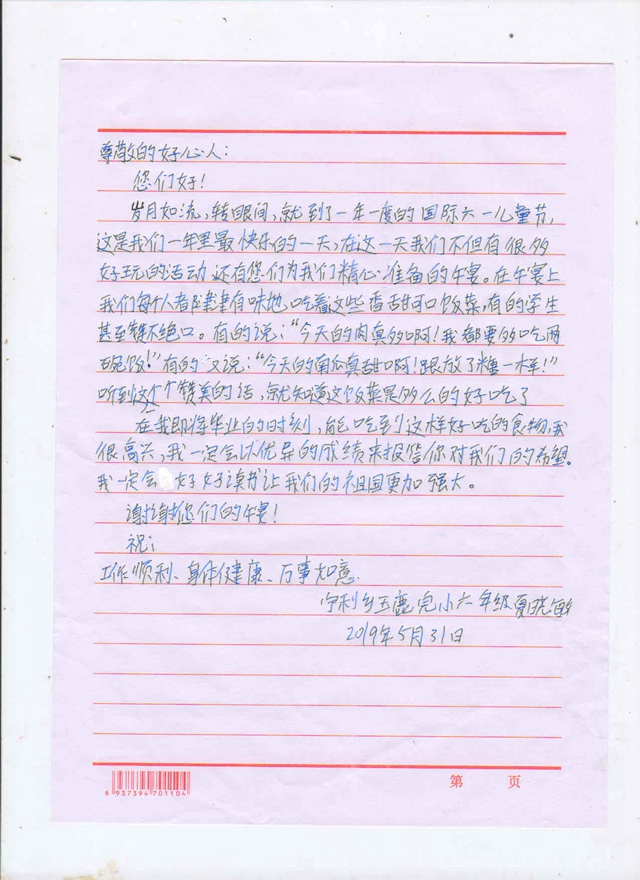 尊敬的好心人：
您们好！
岁月如流，转眼间，就到了一年一度的国际六一儿童节，
这是我们一年里最快乐的一天，在这一天我们不但有很多
好玩的活动还有您们为我们精心准备的午宴。在午宴上
我们每个人都津津有味地吃着这些香甜可口饭菜，有的学生
甚至赞不绝口。有的说：“今天的肉真多啊！我都要多吃两
碗饭！”有的又说：“今天的南瓜真甜啊！跟放了糖一样！”
听到这个个赞美的话，就知道这饭菜是多么的好吃了
在我即将毕业的时刻，能吃到这样好吃的食物，我
很高兴，我一定会以优异的成绩来报答你对我们的希望。
我一定会好好读书让我们的祖国更加强大。
谢谢您们的午宴！
祝：
工作顺利、身体健康、万事如意
宁利乡玉鹿完小六年级夏晓敏
2019年5月31日
6 937394 701104
第 页